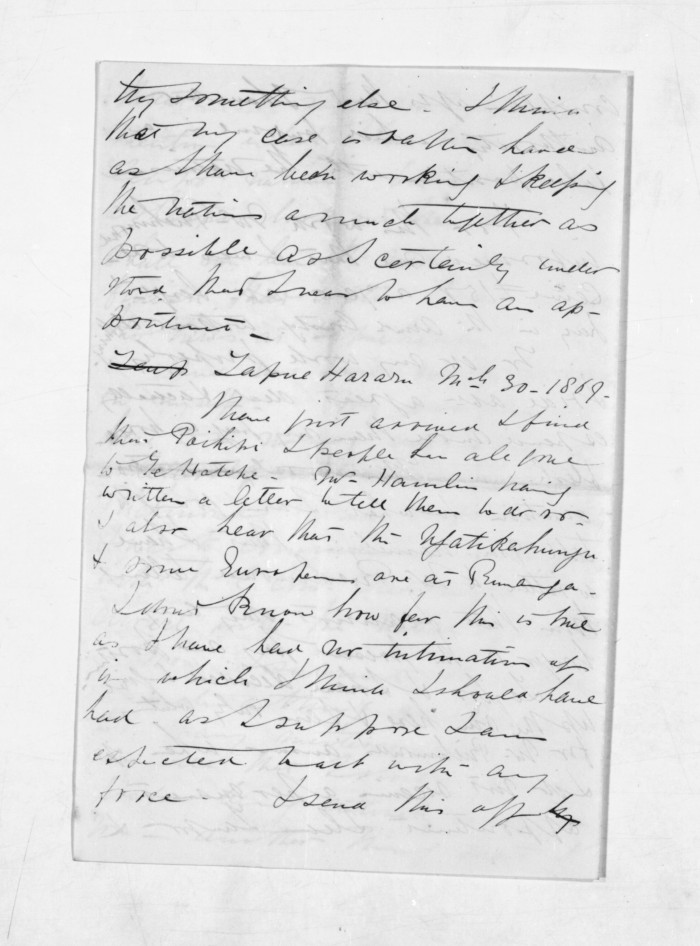 try something else - I think
that my case is rather hard
as I have been working & keeping
the natives as much together as
possible as I certainly under
stood that I was to have an ap-
pointment -
Tapue Hararu Mch 30 - 1869 -
I have just arrived & find
that Poihipi & people have all gone
to Te Hatepe - Mr Hamlin having
written a letter to tell them to do so -
I also hear that the Ngatikahungu
& some Europeans are at Runanga -
I dont know how far this is true
as I have had no intimation of
it which I think I should have
had as I suppose I am
expected to act with any
force - I send this off by